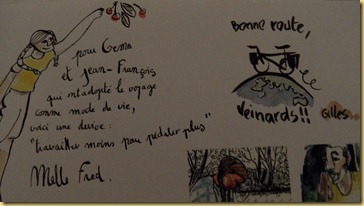 pour Gema
et Jean-François
qui ont adopté le voyage
comme mode de vie,
voici une devise:
"travailler moins pour pédaler plus"
Melle Fred.
Bonne route,
Veinards!!
Gilles..